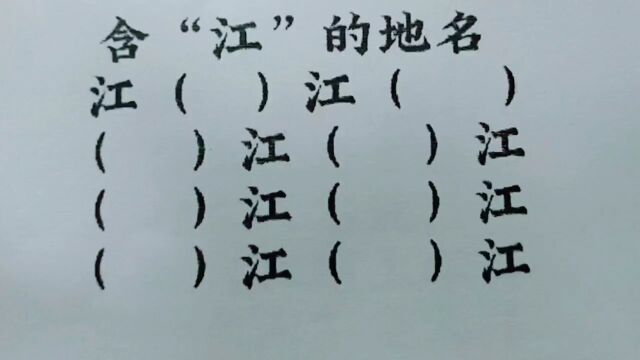 含“江”的地名
江（ ）江（ ）
（ ）江（ ）江
（ ）江（ ）江
（ ）江（ ）江